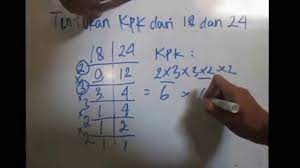 Tentukan KPK dari 18 dan 24
18 24
2 9 12
3 3 4
×3 1 4
×2 1 2
×2 1 1
KPK :
2×3×3×2×2
= 6 ×